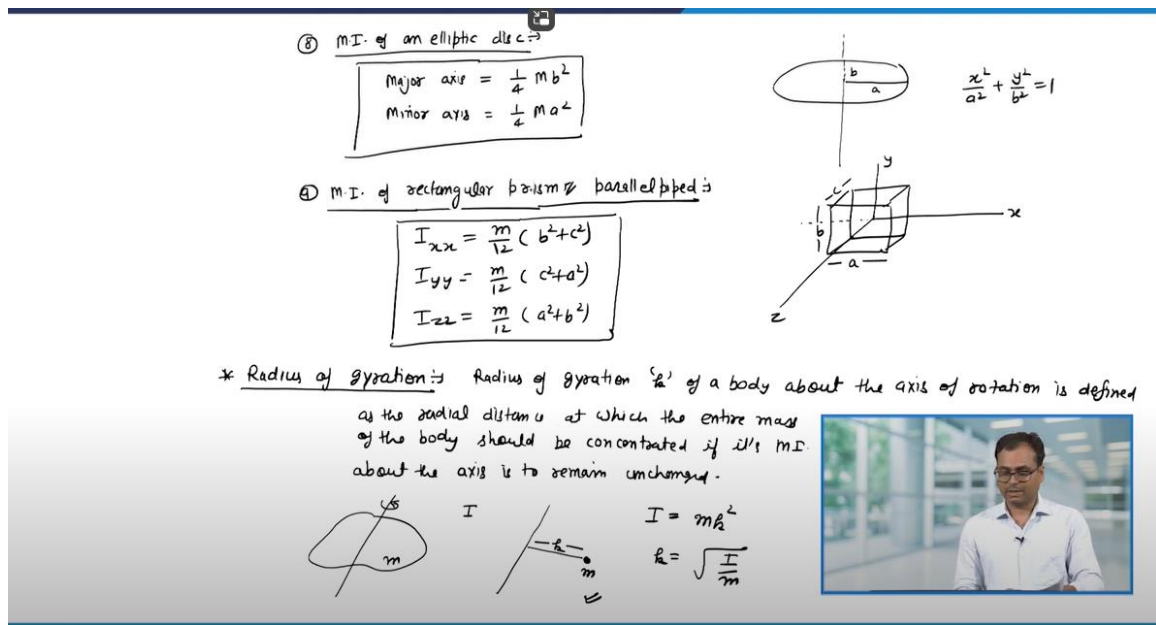 ⑧ M.I. of an elliptic disc :→
Major axis = 1/4 mb²
Minor axis = 1/4 ma²
b
a
x²/a² + y²/b² = 1
⑨ M.I. of rectangular prism or parallelpiped :→
Ixx = m/12 (b²+c²)
Iyy = m/12 (c²+a²)
Izz = m/12 (a²+b²)
y
c
b
a
x
z
* Radius of gyration :→ Radius of gyration 'k' of a body about the axis of rotation is defined
as the radial distance at which the entire mass
of the body should be concentrated if it's M.I.
about the axis is to remain unchanged.
m
I
k
m
I = mk²
k = √(I/m)